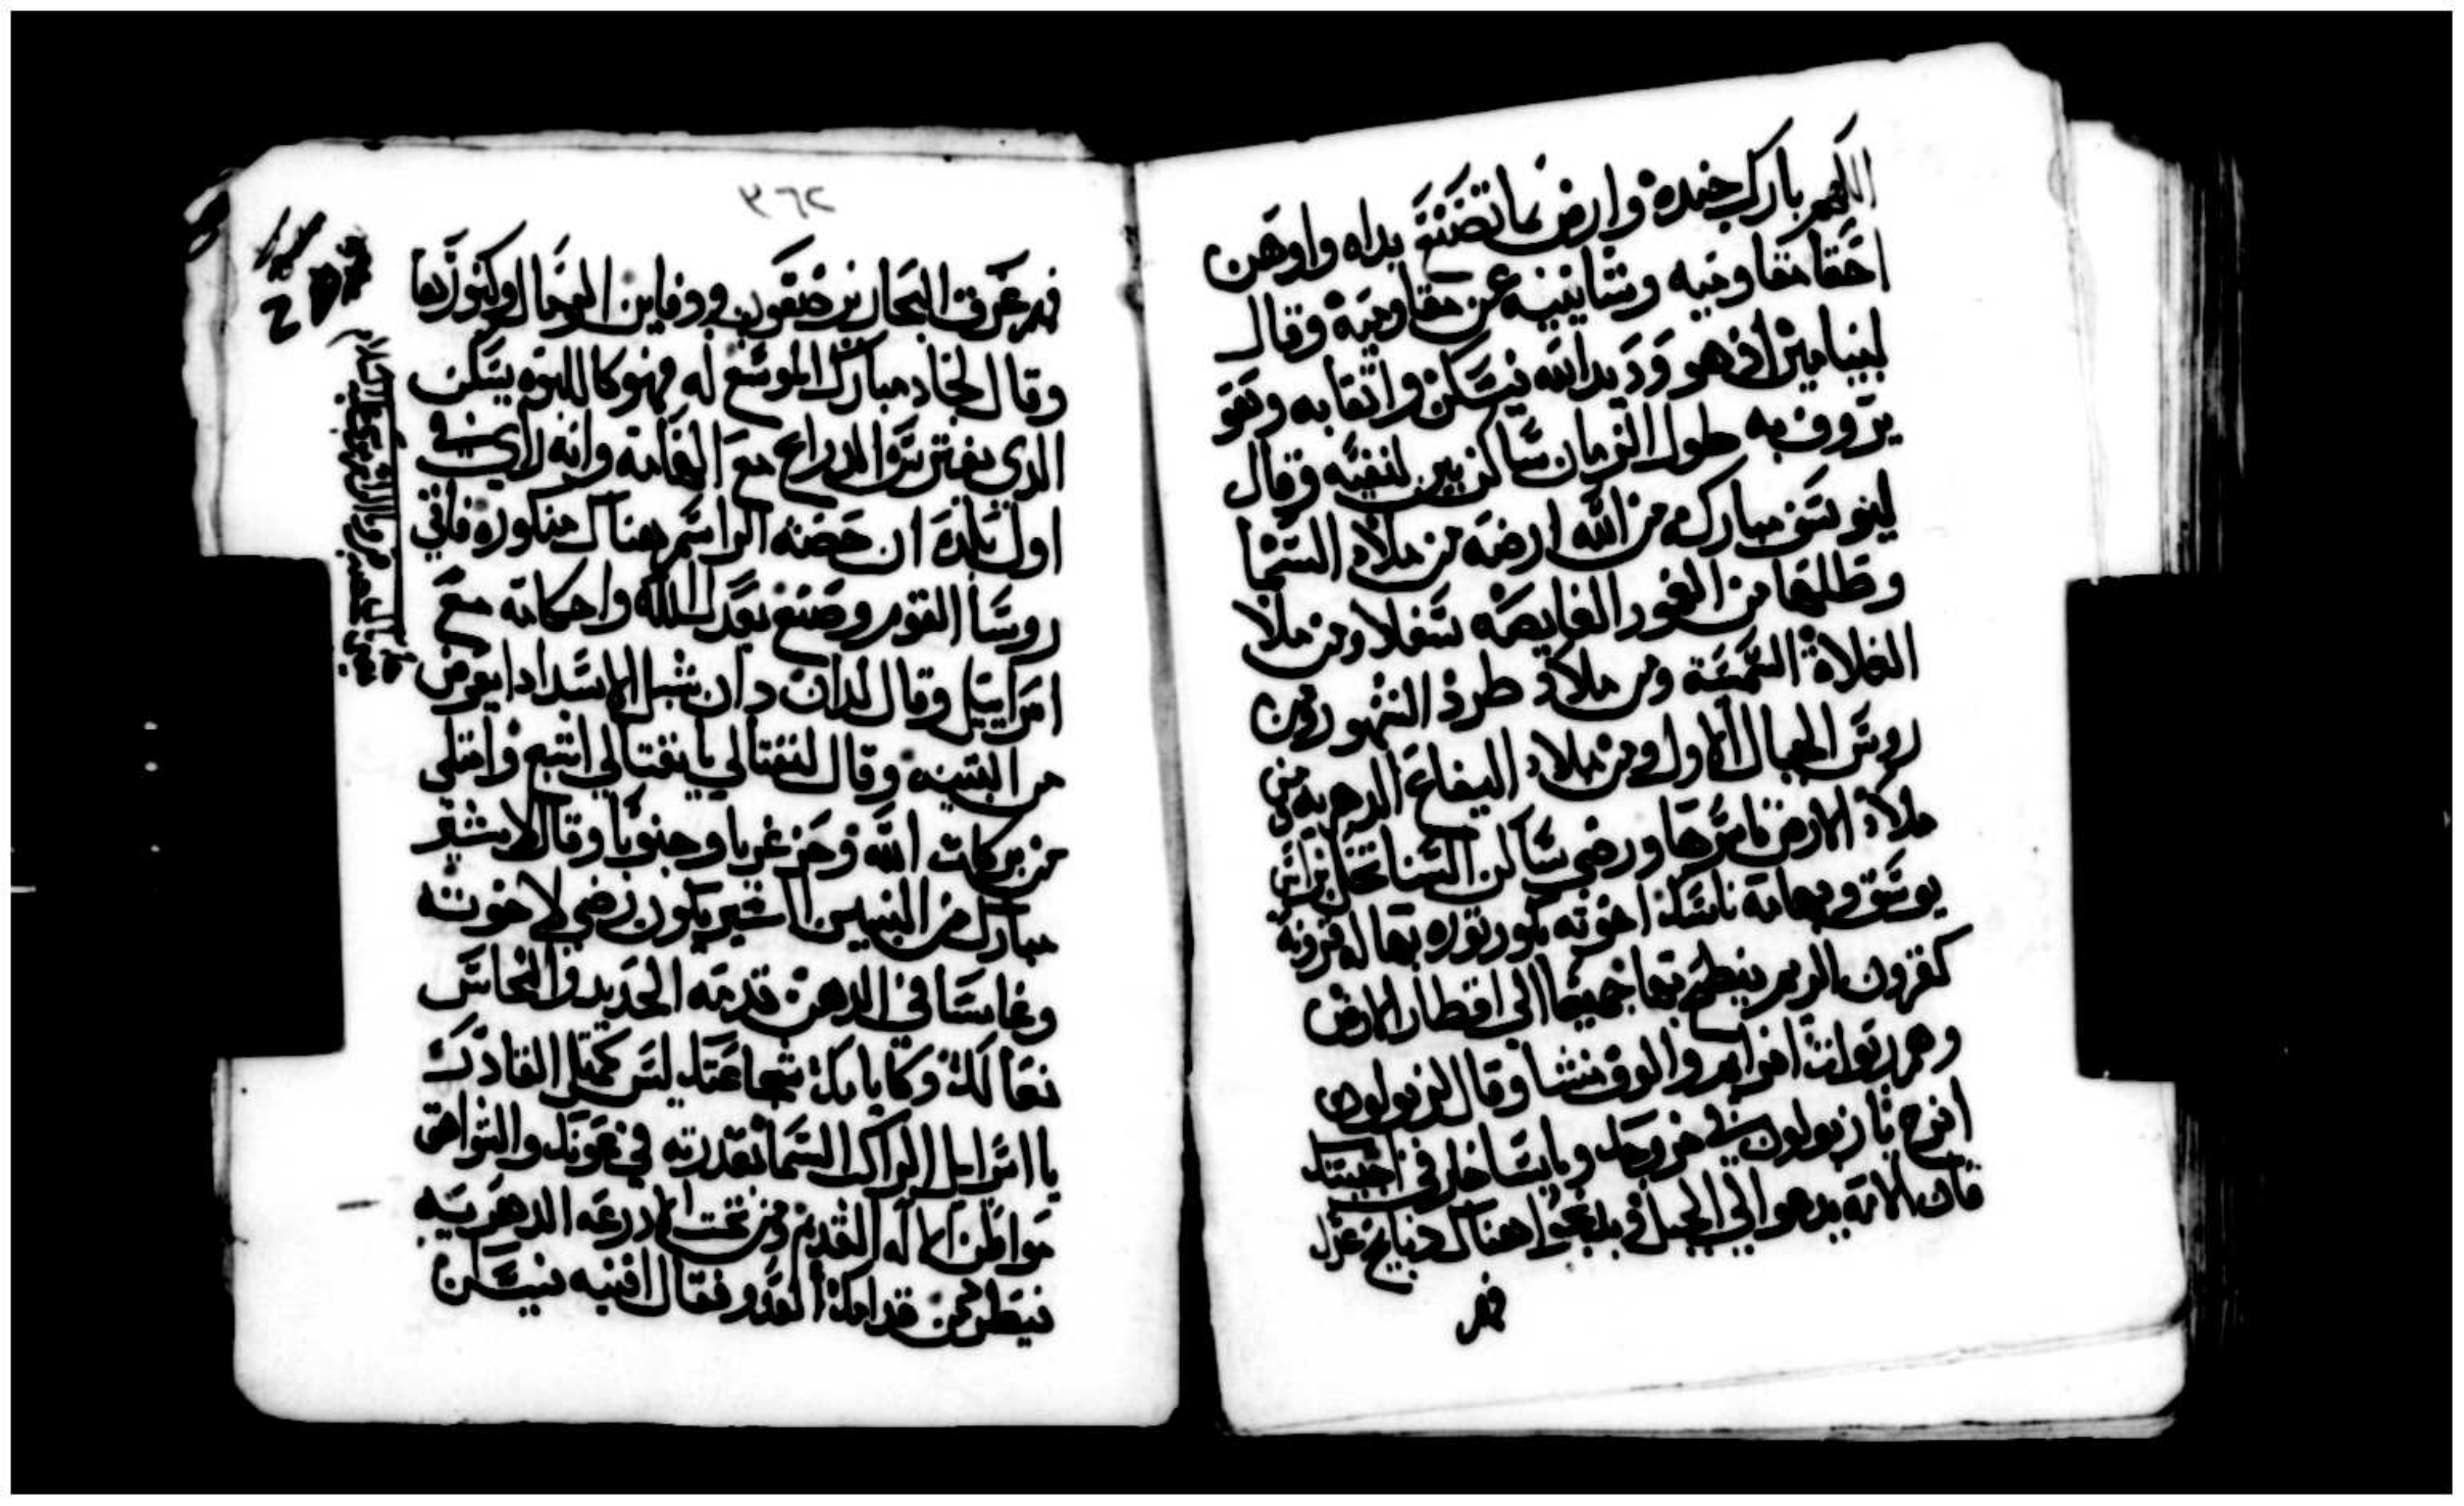 اللهم بارك جنده وارض بما تصنع يداه واوهن
احقا مقاوميه وشانييه عن مقاومته وقال
لبنيامين اذ هو وديد الله فيسكن واثقا به وهو
يرووف به طول الزمان ساكن بين لنفيه وقال
ليوسف مبارك من الله ارضه من ملاذ السما
وطلها من الغور الغايصه سفلا ومن ملاذ
الغلاة الشمسة ومن ملاذ طرد الشهور ومن
روس الجبال الاول ومن ملاذ اليفاع الدهريه من
ملاذ الارض باسرها ورضى ساكن السنا تحل براس
يوسف وبهامة ناسك اخوته بكور ثوره بها له قرونه
كقرون الريم ينطح بها جميعا الى اقطار الارض
وهم ربوات افرايم والوف منشا وقال لزبولون
افرح يا زبولون في خروجك ويا يساخر في اخبيتك
فان الامة يدعو الي الجبل و يذبحوا هناك دبايح عدل
فهر
٣٦٢
فهم غرق البحار يرضعون ودفاين الرمال وكنوزها
وقال لجاد مبارك الموسع له فهو كاللبوه يسكن
الدي يفترس الدراع مع الهامة وانه راى في
اول بلده ان حصته الراسم هناك مذكوره فاتي
روسا القوم وصنع بعدل الله واحكامه مع
اسراييل وقال لدان دان شبل الاسد اذا يعرض
من البتنيه وقال لنفتالي يا نفتالي اشبع وامتلي
من بركات الله وحز غربا وجنوبا وقال لاشير
مبارك من البنين اشير يكون رضي لاخوته
وغامسا في الدهن قدمه الحديد والنحاس
نعالك وكايامك شجاعتك ليس كمثل القادر
يا اسرايل الراكب السما بقدرته في عونك والشواهق
مواطن الاله القديم ومن تحت الادرعه الدهريه
فيطرد من قدامك العدو فقال افنيه فيسكن